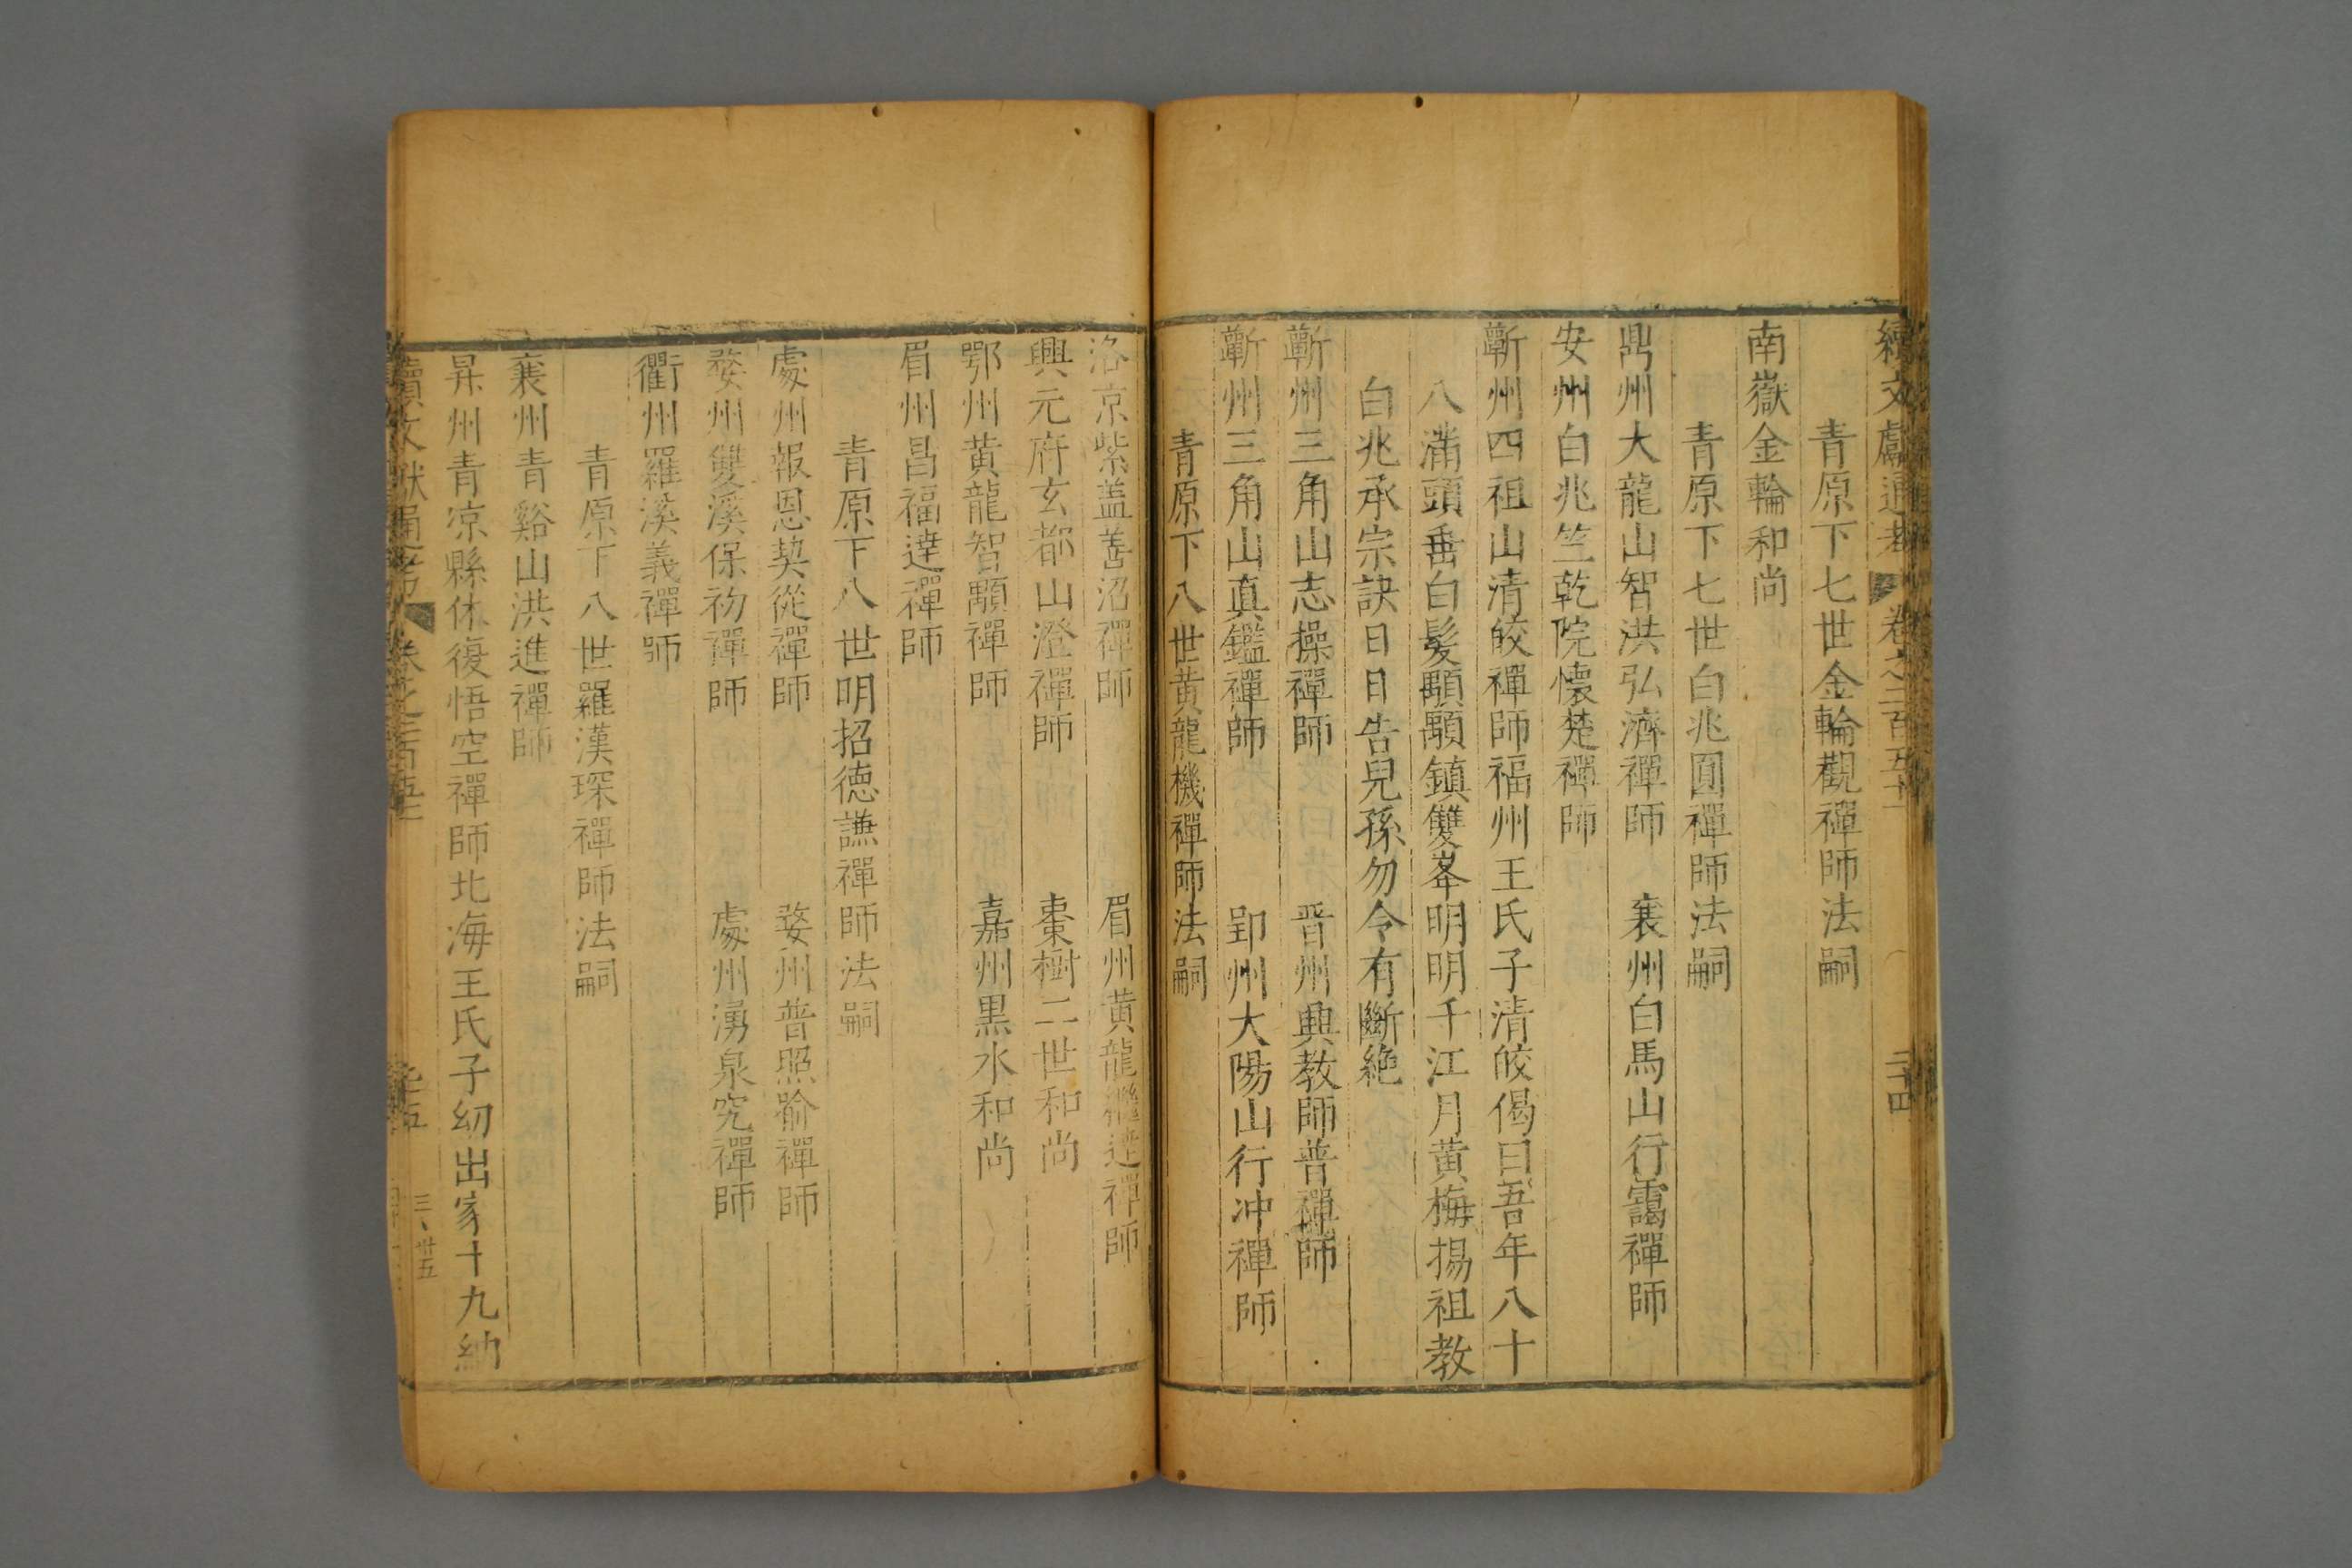 續文獻通考 卷之二百五十 二十四
青原下七世金輪觀禪師法嗣
南嶽金輪和尚
青原下七世白兆圓禪師法嗣
鼎州大龍山智洪弘濟禪師 襄州白馬山行靄禪師
安州白兆竺乾院懷楚禪師
蘄州四祖山清皎禪師福州王氏子清皎偈曰吾年八十
八滿頭垂白髮顒顒鎮雙峯明明千江月黃梅揚祖教
白兆承宗訣日日告兒孫勿令有斷絶
蘄州三角山志操禪師 晋州興教師普禪師
蘄州三角山真鑑禪師 郢州大陽山行冲禪師
青原下八世黄龍機禪師法嗣
洛京紫盖善沼禪師 眉州黄龍繼達禪師
興元府玄都山澄禪師 棗樹二世和尚
鄂州黄龍智顒禪師 嘉州黑水和尚
眉州昌福達禪師
青原下八世明招德謙禪師法嗣
處州報恩契從禪師 婺州普照瑜禪師
婺州雙溪保初禪師 處州湧泉究禪師
衢州羅溪義禪師
青原下八世羅漢琛禪師法嗣
襄州青谿山洪進禪師
昇州青凉縣休復悟空禪師北海王氏子幼出家十九納
續文獻通考 卷之二百五十
三、卅五